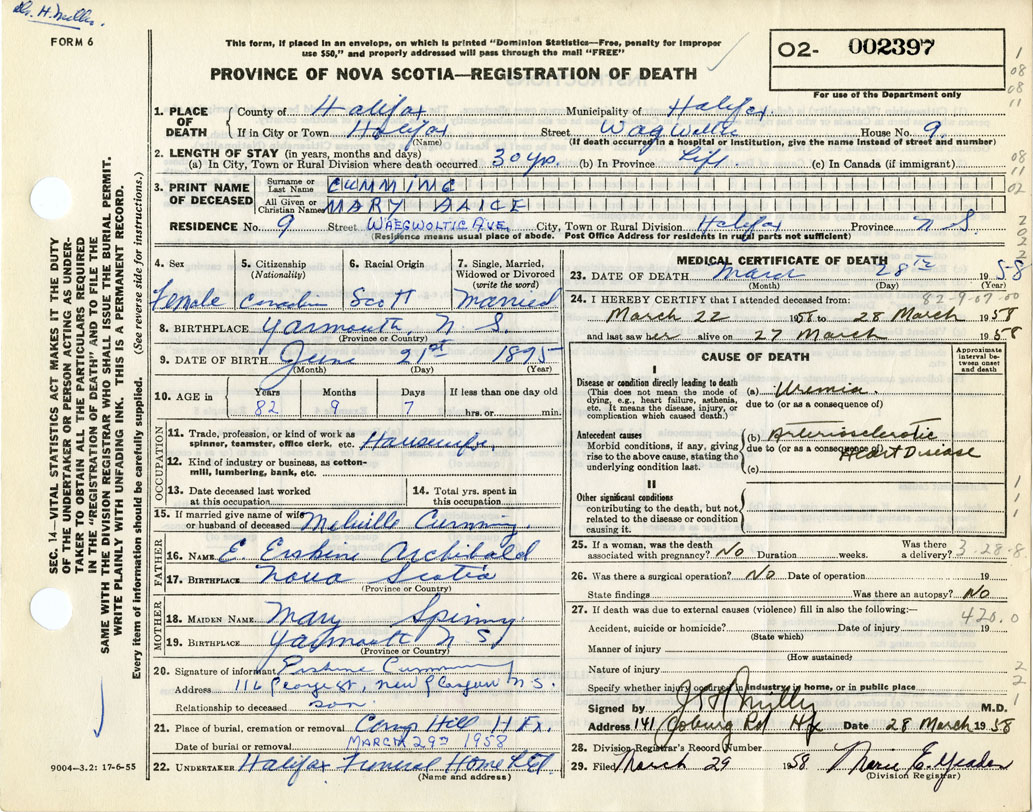 Dr. H. Miller
FORM 6
This form, if placed in an envelope, on which is printed "Dominion Statistics—Free, penalty for improper
use $50," and properly addressed will pass through the mail "FREE"
PROVINCE OF NOVA SCOTIA—REGISTRATION OF DEATH
O2- 002397
For use of the Department only
1. PLACE OF DEATH County of Halifax Municipality of Halifax
If in City or Town Halifax Street Waegwoltic House No. 9.
(Name) (If death occurred in a hospital or institution, give the name instead of street and number)
2. LENGTH OF STAY (in years, months and days)
(a) In City, Town or Rural Division where death occurred 30 yrs. (b) In Province Life. (c) In Canada (if immigrant)
3. PRINT NAME OF DECEASED Surname or Last Name CUMMING
All Given or Christian Names MARY ALICE
RESIDENCE No. 9 Street WAEGWOLTIC AVE. City, Town or Rural Division Halifax Province N S.
(Residence means usual place of abode. Post Office Address for residents in rural parts not sufficient)
4. Sex 5. Citizenship (Nationality) 6. Racial Origin 7. Single, Married, Widowed or Divorced (write the word)
Female Canadian Scott Married
8. BIRTHPLACE Yarmouth, N. S.
(Province or Country)
9. DATE OF BIRTH June 21st 1875
(Month) (Day) (Year)
10. AGE in Years Months Days If less than one day old
82 9 7 hrs. or min.
OCCUPATION
11. Trade, profession, or kind of work as spinner, teamster, office clerk, etc. Housewife.
12. Kind of industry or business, as cotton-mill, lumbering, bank, etc.
13. Date deceased last worked at this occupation 14. Total yrs. spent in this occupation
15. If married give name of wife or husband of deceased Melville Cumming.
FATHER
16. NAME E. Erskine Archibald
17. BIRTHPLACE Nova Scotia
(Province or Country)
MOTHER
18. MAIDEN NAME Mary Spinny.
19. BIRTHPLACE Yarmouth N S
(Province or Country)
20. Signature of informant Erskine Cumming
Address 116 George St, New Glasgow N.S.
Relationship to deceased Son.
21. Place of burial, cremation or removal Camp Hill Hfx.
Date of burial or removal MARCH 29 1958
22. UNDERTAKER Halifax Funeral Home Ltd
(Name and address)
MEDICAL CERTIFICATE OF DEATH
23. DATE OF DEATH March 28TH 1958
(Month) (Day) (Year)
82-9-07-00
24. I HEREBY CERTIFY that I attended deceased from:
March 22 1958 to 28 March 1958
and last saw her alive on 27 March 1958
CAUSE OF DEATH
Approximate interval between onset and death
I
Disease or condition directly leading to death
(This does not mean the mode of dying, e.g., heart failure, asthenia, etc. It means the disease, injury, or complication which caused death.)
(a) Uremia.
due to (or as a consequence of)
Antecedent causes
Morbid conditions, if any, giving rise to the above cause, stating the underlying condition last.
(b) Arteriosclerotic
due to (or as a consequence of) Heart Disease
(c)
II
Other significant conditions
contributing to the death, but not related to the disease or condition causing it.
25. If a woman, was the death associated with pregnancy? No Duration weeks. Was there a delivery?
3-28-8
26. Was there a surgical operation? No Date of operation 19
State findings Was there an autopsy? No
27. If death was due to external causes (violence) fill in also the following:—
420.0
Accident, suicide or homicide? Date of injury 19
(State which)
Manner of injury
(How sustained)
Nature of injury
Specify whether injury occurred in industry, in home, or in public place
Signed by M.D.
Address 141 Coburg Rd Hfx Date 28 March 1958
28. Division Registrar's Record Number
29. Filed March 29 1958 Marie E.
(Division Registrar)
SEC. 14—VITAL STATISTICS ACT MAKES IT THE DUTY
OF THE UNDERTAKER OR PERSON ACTING AS UNDER-
TAKER TO OBTAIN ALL THE PARTICULARS REQUIRED
IN THE "REGISTRATION OF DEATH" AND TO FILE THE
SAME WITH THE DIVISION REGISTRAR WHO SHALL ISSUE THE BURIAL PERMIT.
WRITE PLAINLY WITH UNFADING INK. THIS IS A PERMANENT RECORD.
Every item of information should be carefully supplied. (See reverse side for instructions.)
9004—3.2: 17-6-55